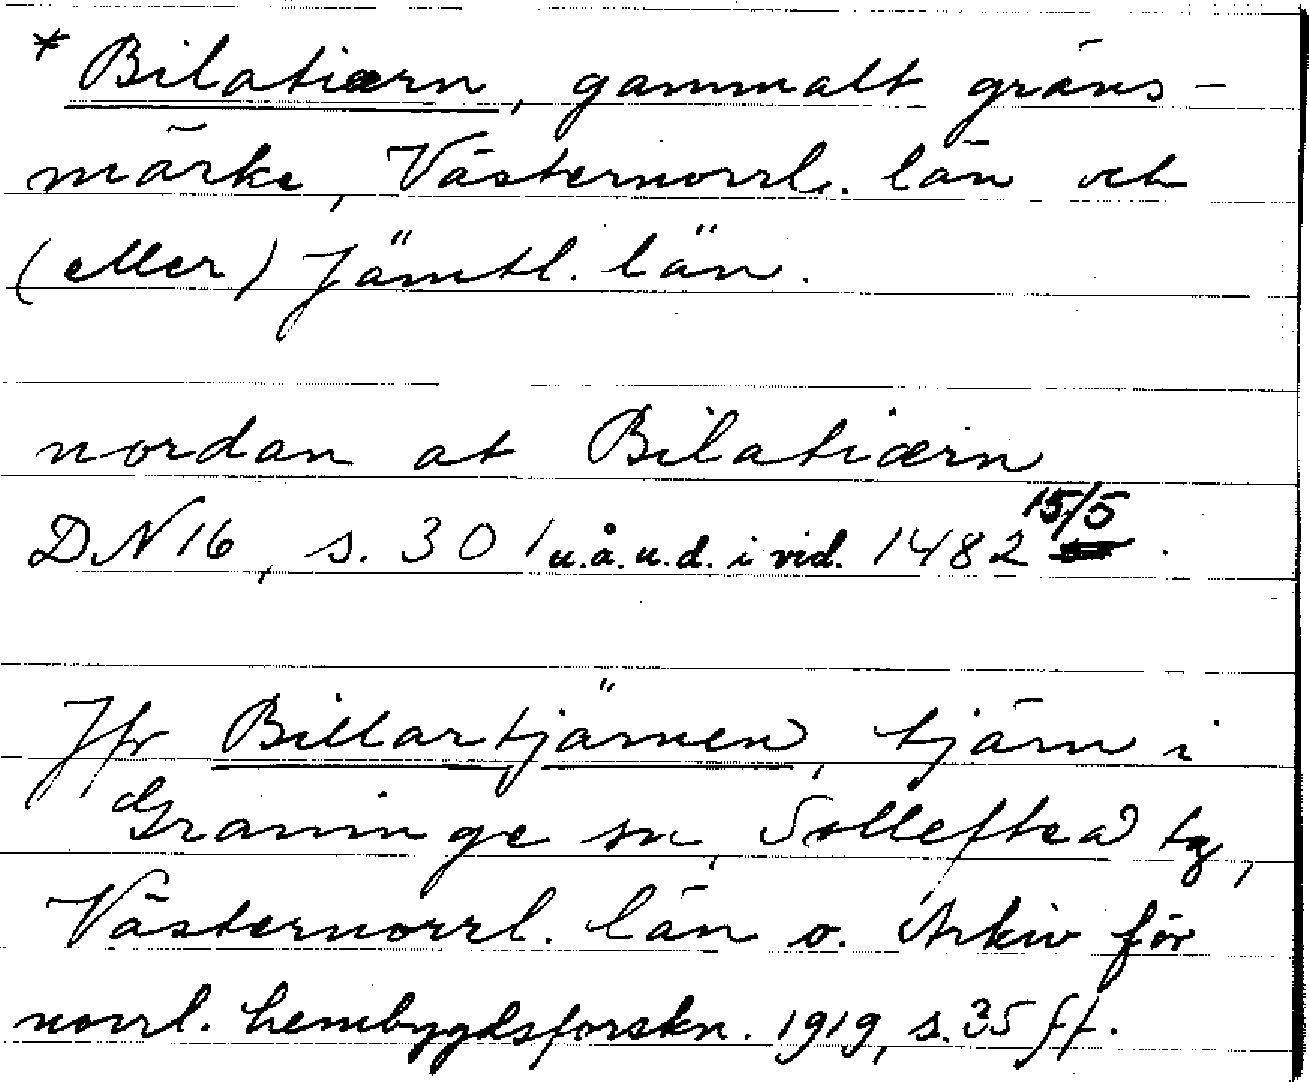 * Bilatiærn, gammalt gräns-
märke, Västernorrl. län och
(eller) Jämtl. län.
nordan at Bilatiærn
DN 16, s. 301 u.å.u.d. i vid. 1482 15/5.
Jfr Billartjärnen, tjärn i
Graninge sn, Sollefteå tg,
Västernorrl. län o. Arkiv för
norrl. hembygdsforskn. 1919, s. 35 ff.